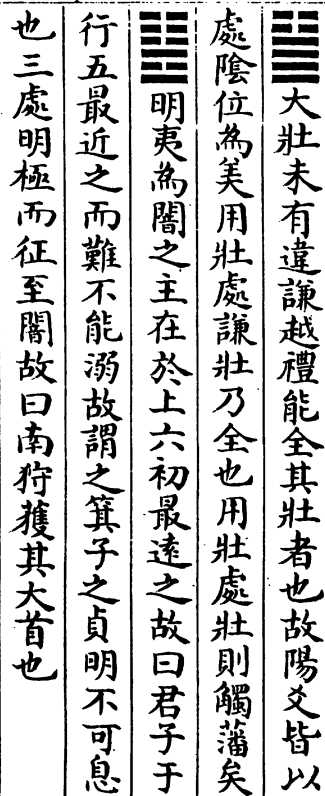 ䷡大壯未有違謙越禮能全其壯者也故陽爻皆以
處隂位為美用壯處謙壯乃全也用壯處壯則觸藩矣
䷣明夷為闇之主在於上六初最逺之故曰君子于
行五最近之而難不能溺故謂之箕子之貞明不可息
也三處明極而征至闇故曰南狩獲其大首也